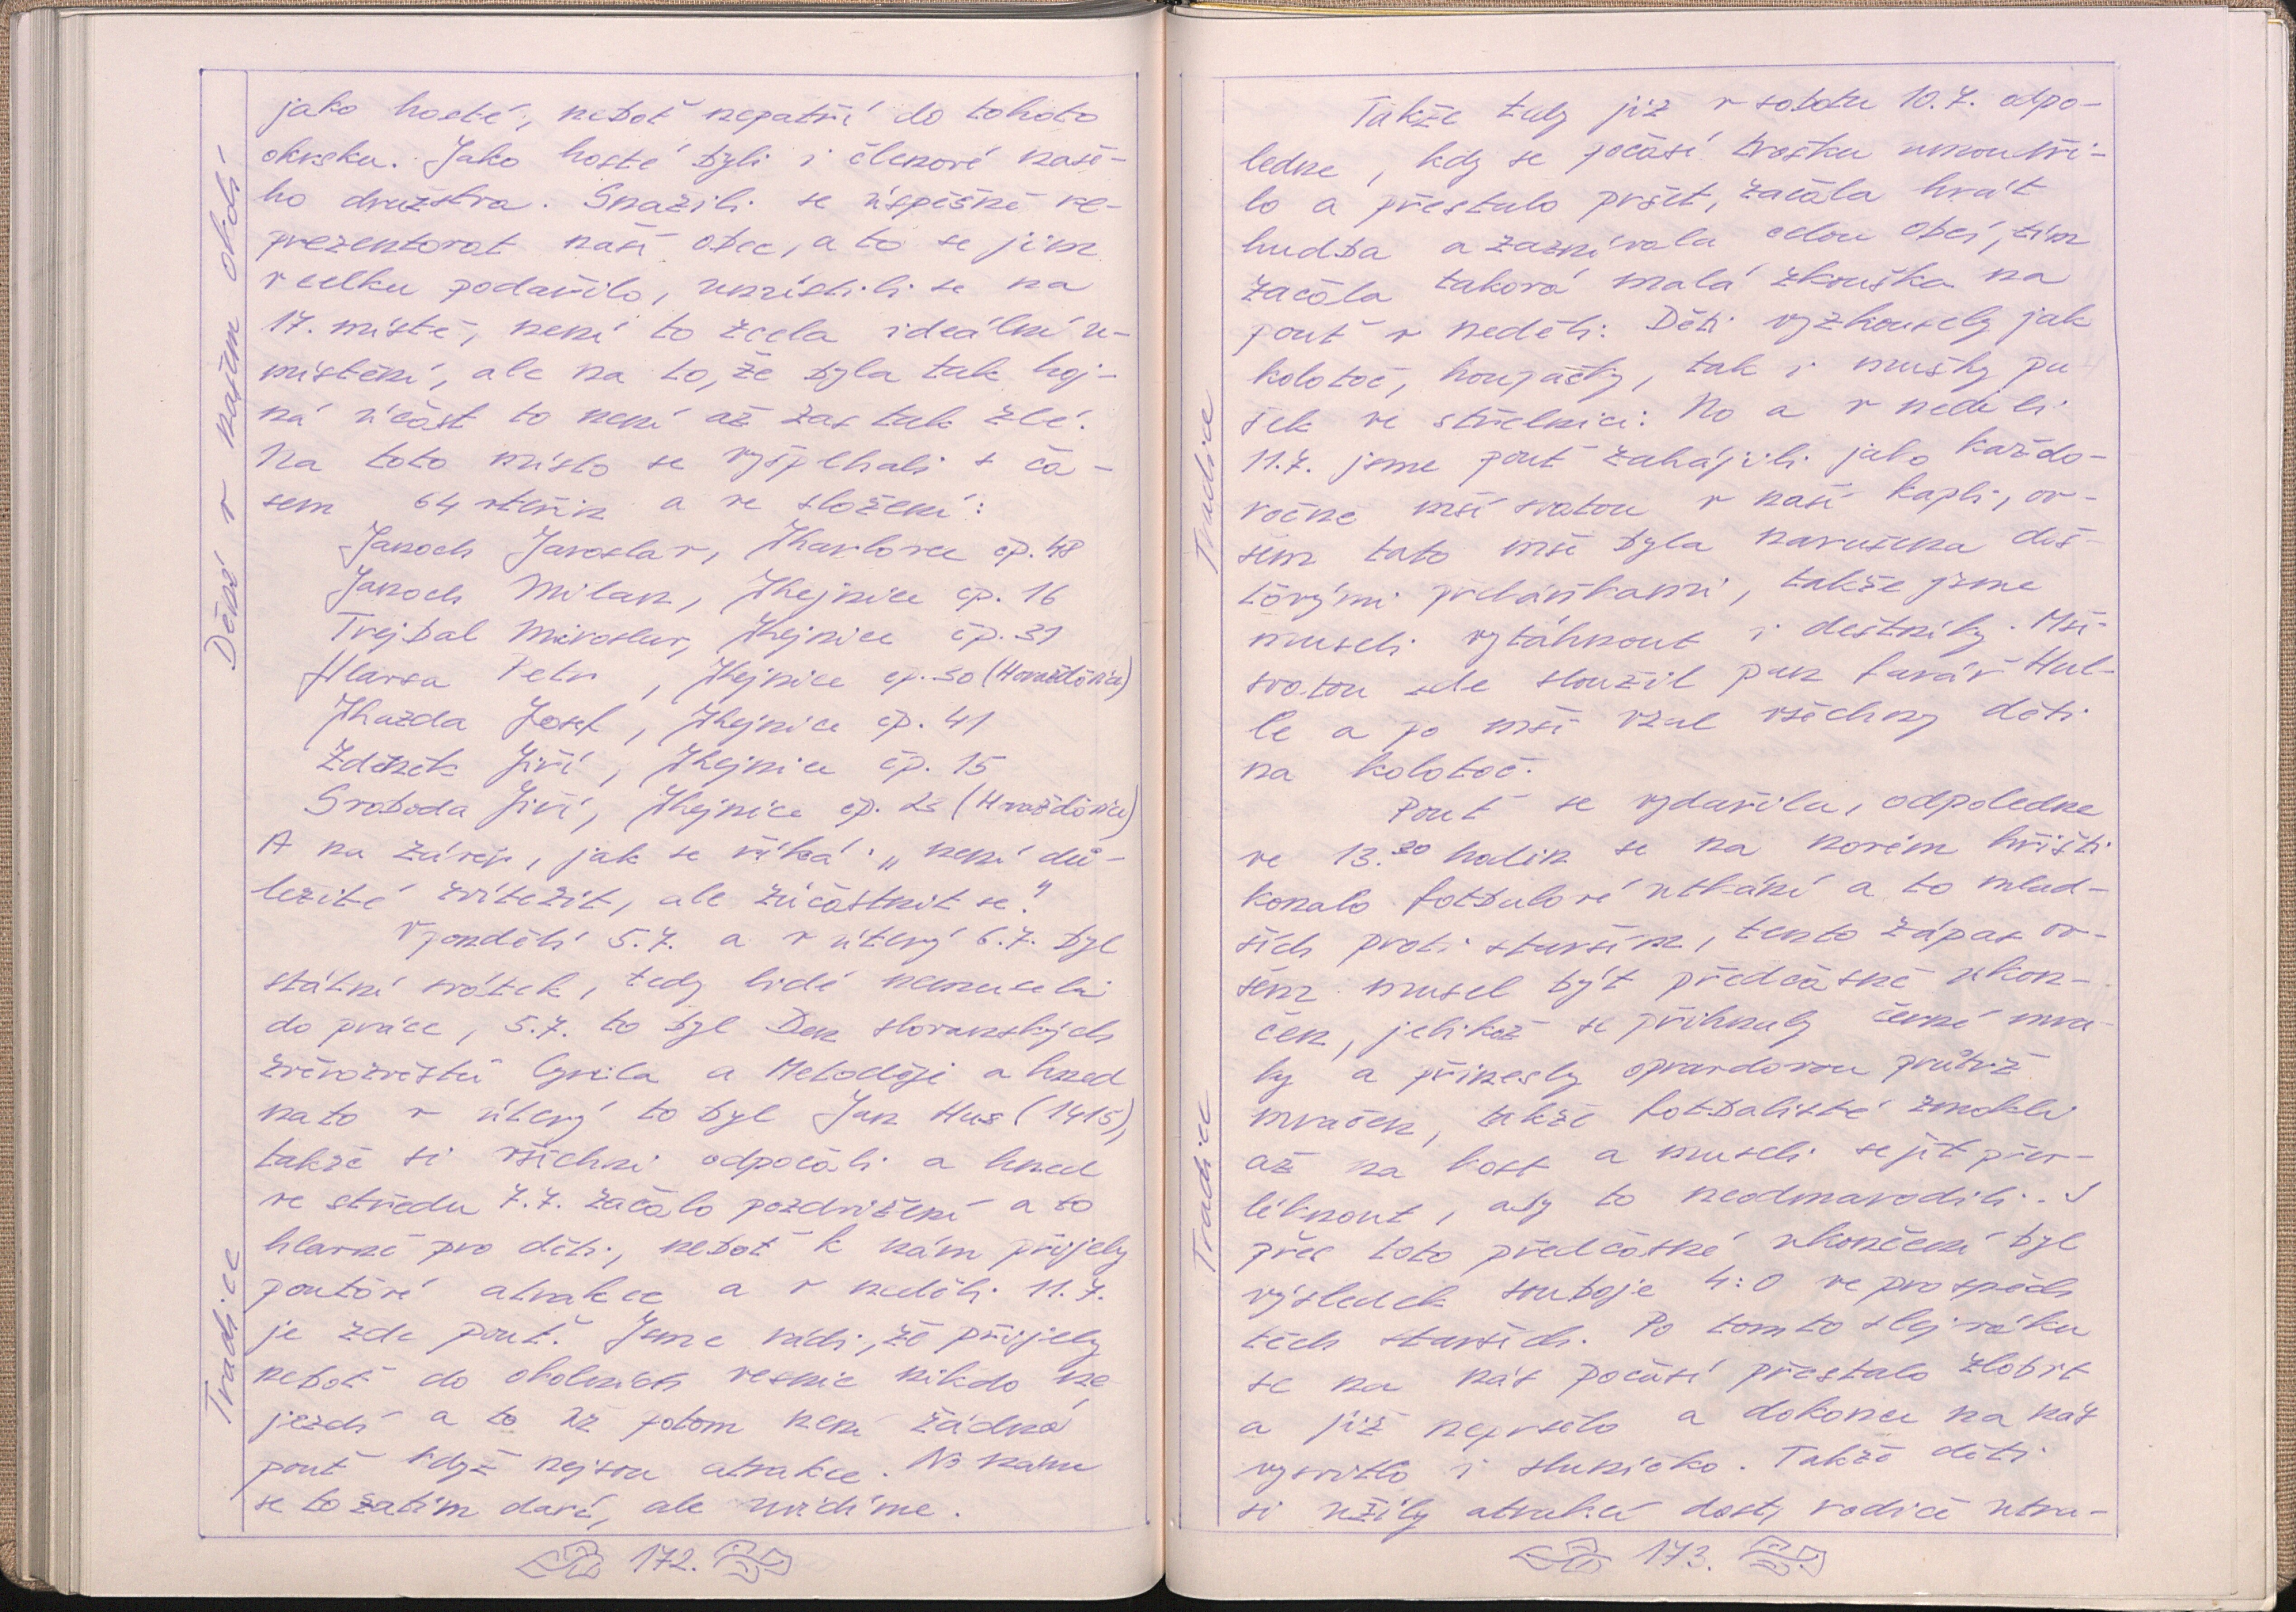 Dění v našem obdo-
jako hosté, neboť nepatří do tohoto
okrsku. Jako hosté byli i členové naše-
ho družstva. Snažili se úspěšně re-
prezentovat naši obec, a to se jim
vcelku podařilo, umístili se na
17. místě, není to zcela ideální u-
místění, ale na to, že byla tak hoj-
ná účast to není až zas tak zlé.
Na toto místo se vyšplhali s ča-
sem 64 vteřin a ve složení:
Janoch Jaroslav, Karlovce čp. 48
Janoch Milan, Khejnice čp. 16
Trejbal Miroslav, Khejnice čp. 31
Hlavsa Petr, Khejnice čp. 30 (Horažďovice)
Josef, Khejnice čp. 41
Zdeněk Jiří, Khejnice čp. 15
Svoboda Jiří, Khejnice čp. (Horažďovice)
A na závěr, jak se říká: „není dů-
ležité zvítězit, ale zúčastnit se."
V pondělí 5.7. a v úterý 6.7. byl
státní svátek, tedy lidé nemuseli
do práce, 5.7. to byl Den slovanských
zvěrozvěstů Cyrila a Metoděje a hned
na to v úterý to byl Jan Hus (1415),
takže si všichni odpočali a hned
ve středu 7.7. začalo pozdvižení a to
hlavně pro děti, neboť k nám přijely
Tradice
pouťové atrakce a v neděli 11.7.
je zde pouť. Jsme rádi, že přijely
neboť do okolních vesnic nikdo ne
jezdí a to už potom není žádná
pouť když nejsou atrakce. No nám
se to zatím daří, ale uvidíme.
172.
Takže tedy již v sobotu 10.7. odpo-
ledne, kdy se počasí trošku umoudři-
lo a přestalo pršet, začala hrát
hudba a zaznívala celou obcí, tím
začala taková malá zkouška na
pouť v neděli. Děti vyzkoušely jak
kolotoč, houpačky, tak i mušky pu
šek ve střelnici. No a v neděli
Tradice
11.7. jsme pouť zahájili jako každo-
ročně mší svatou v naší kapli, ov-
šem tato mše byla narušena deš-
ťovými přeháňkami, takže jsme
museli vytáhnout i deštníky. Mši
svatou zde sloužil pan farář Hul-
le a po mši vzal všechny děti
na kolotoč.
Pouť se vydařila, odpoledne
ve 13.30 hodin se na novém hřišti
konalo fotbalové utkání a to mlad-
ších proti starším, tento zápas ov-
šem musel být předčasně ukon-
čen, jelikož se přihnaly černé mra-
ky a přinesly opravdovou průtrž
mračen, takže fotbalisté zmokli
Tradice
až na kost a museli se jít přev-
léknout, aby to neodmarodili. I
přes toto předčasné ukončení byl
výsledek souboje 4:0 ve prospěch
těch starších. Po tomto slejváku
se na nás počasí přestalo zlobit
a již nepršelo a dokonce na nás
vysvitlo i sluníčko. Takže děti
si užily atrakcí dost, rodiče utra-
173.